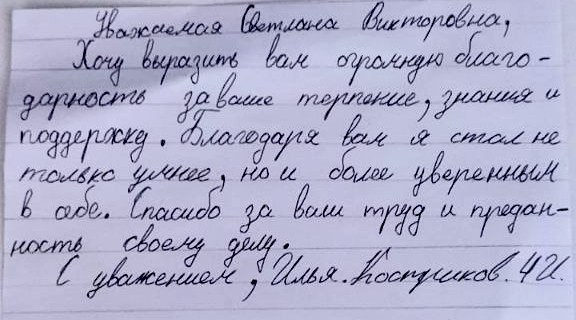 Уважаемая Светлана Викторовна,
Хочу выразить вам огромную благо-
дарность за ваше терпение, знания и
поддержку. Благодаря вам я стал не
только умнее, но и более уверенным
в себе. Спасибо за ваш труд и предан-
ность своему делу.
С уважением, Илья. Костриков. 4 И.